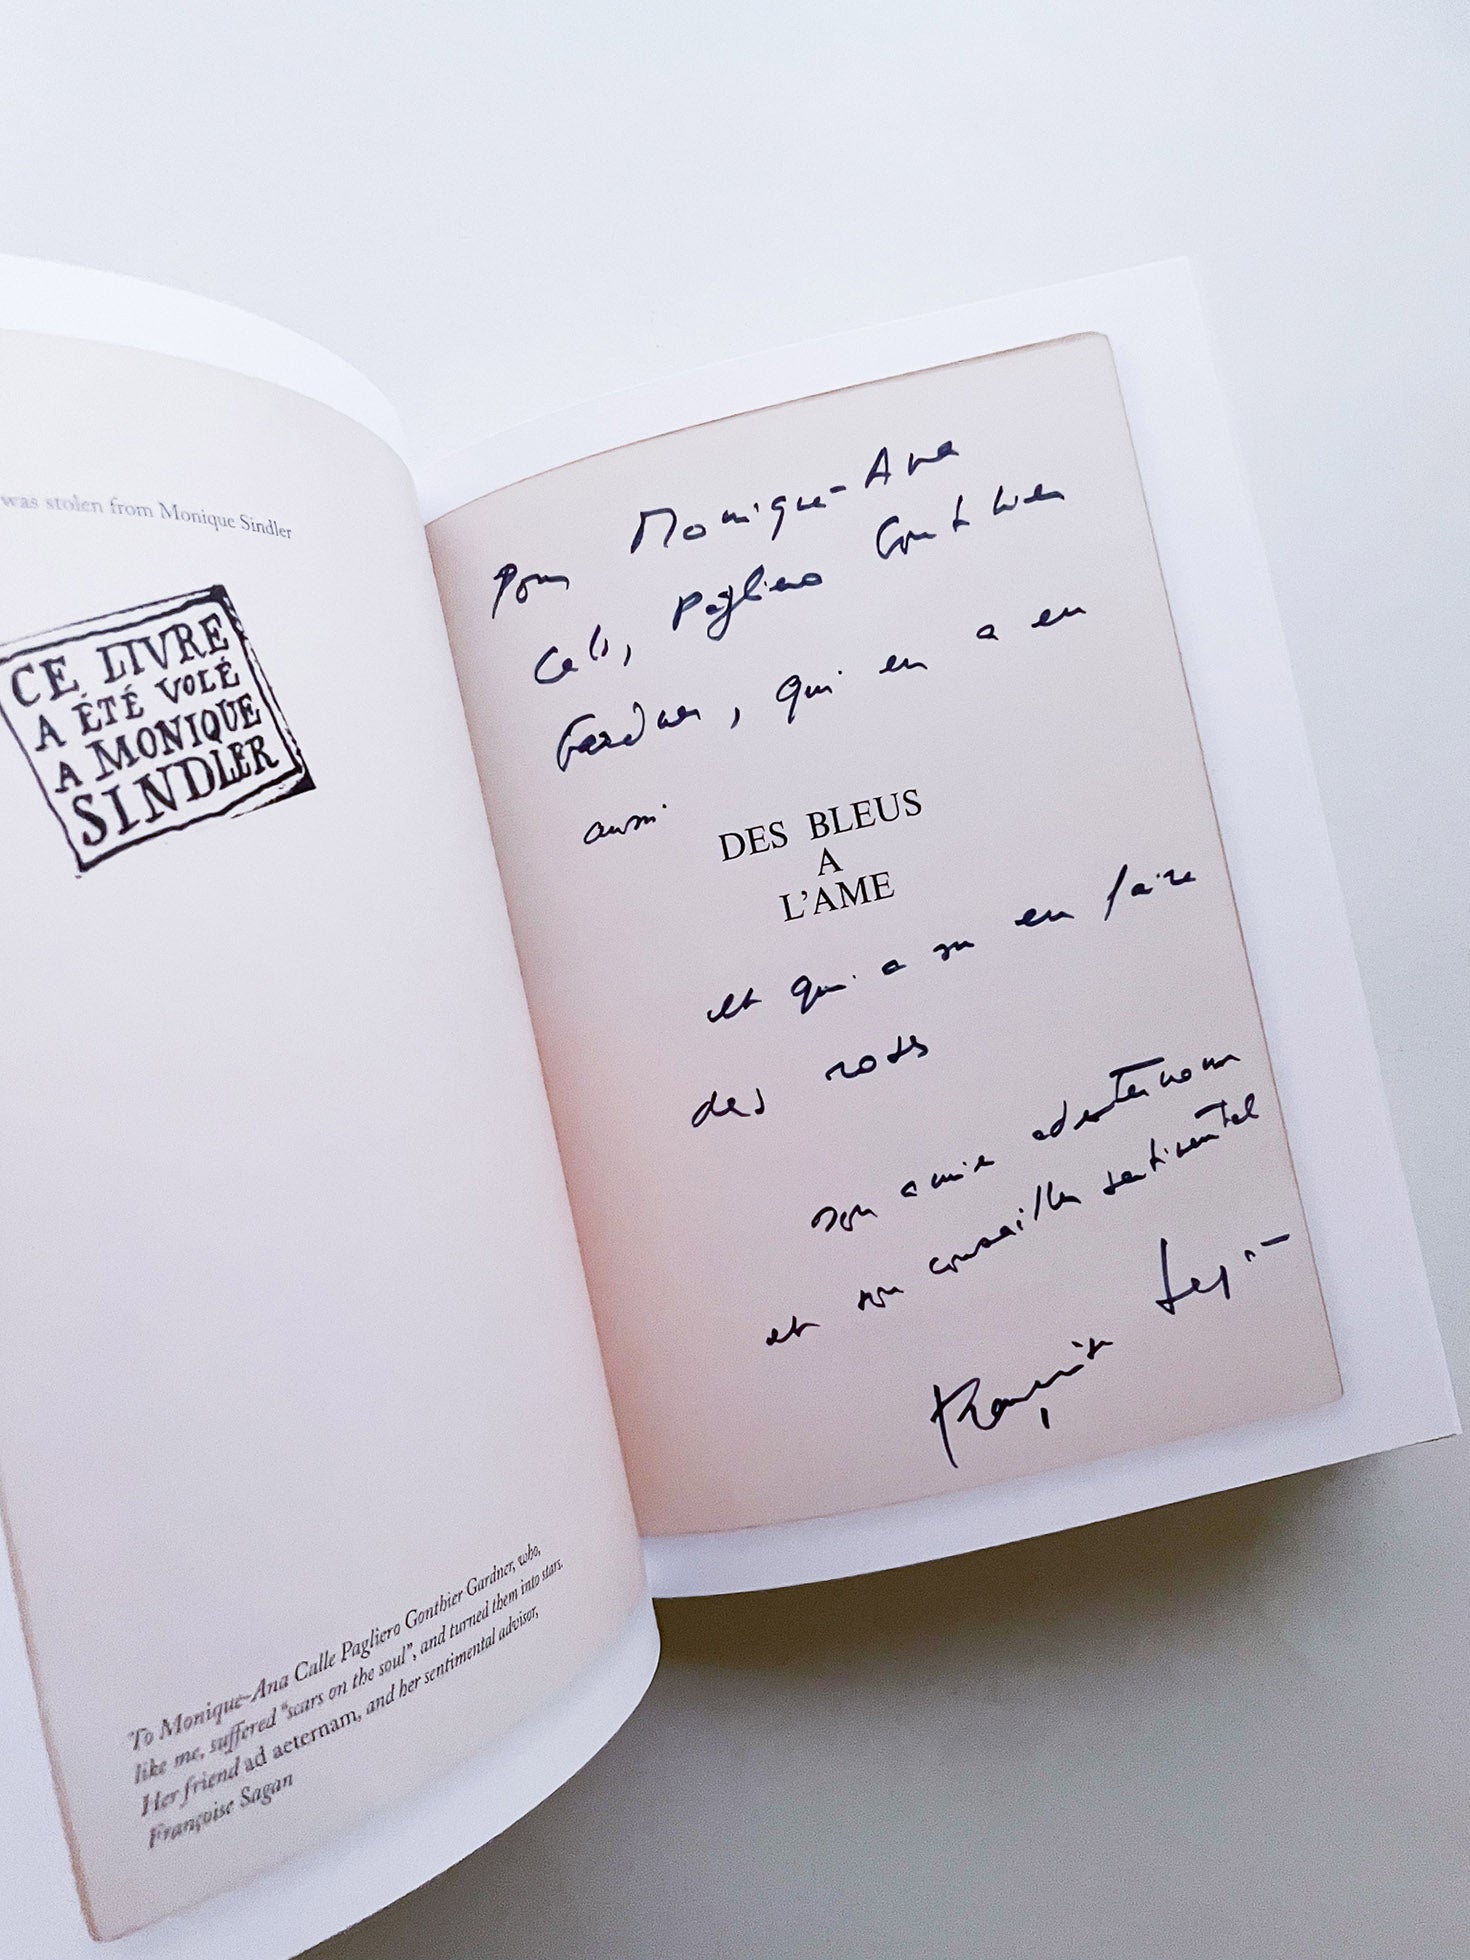 was stolen from Monique Sindler
CE LIVRE
A ÉTÉ VOLÉ
A MONIQUE
SINDLER
To Monique-Ana Calle Pagliero Gonthier Gardner, who,
like me, suffered "scars on the soul", and turned them into stars.
Her friend ad aeternam, and her sentimental advisor,
Françoise Sagan
Pour Monique-Ana
Calle, Pagliero Gonthier
Gardner, qui en a eu
aussi
DES BLEUS
A
L'AME
et qui a su en faire
des
son amie ad aeternam
et son conseiller sentimental
Françoise Sagan